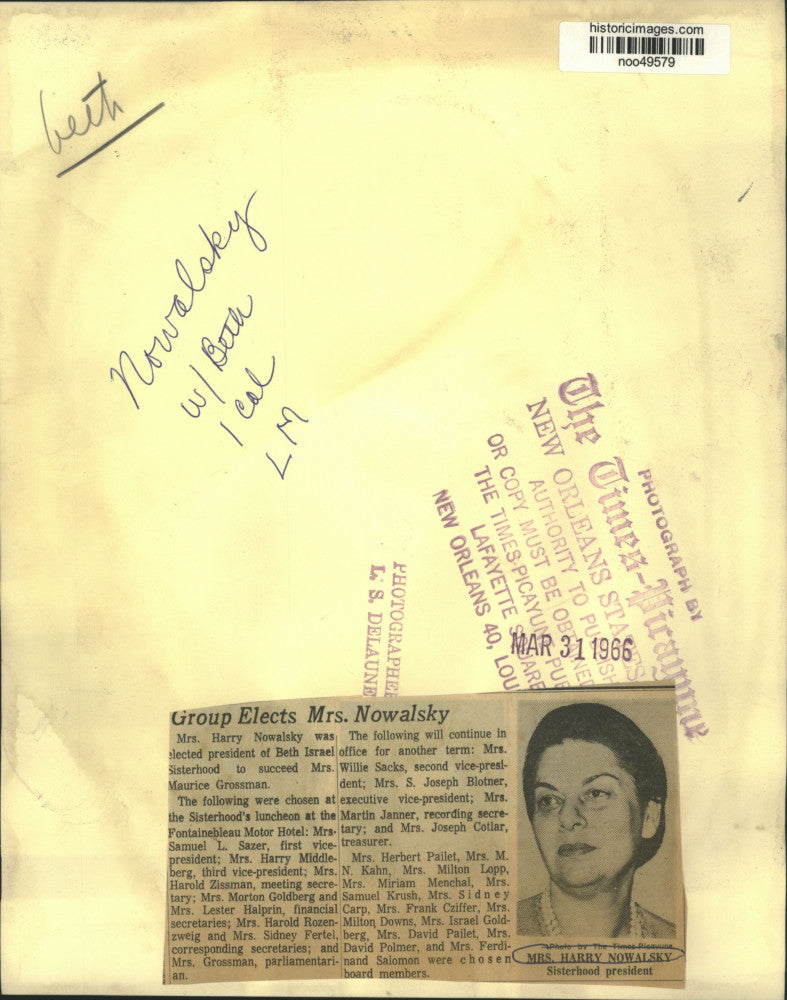 historicimages.com
noo49579
beth
Nowalsky
w/ Beth
1 col
LM
PHOTOGRAPH BY
The Times-Picayune
NEW ORLEANS STATES
AUTHORITY TO PUBLISH
OR COPY MUST BE OBTAINED
THE TIMES-PICAYUNE PUB
LAFAYETTE SQUARE
NEW ORLEANS 40, LOU
MAR 31 1966
PHOTOGRAPHER
L. S. DELAUNE
Group Elects Mrs. Nowalsky
Mrs. Harry Nowalsky was
elected president of Beth Israel
Sisterhood to succeed Mrs.
Maurice Grossman.
The following were chosen at
the Sisterhood's luncheon at the
Fontainebleau Motor Hotel: Mrs.
Samuel L. Sazer, first vice-
president; Mrs. Harry Middle-
berg, third vice-president; Mrs.
Harold Zissman, meeting secre-
tary; Mrs. Morton Goldberg and
Mrs. Lester Halprin, financial
secretaries; Mrs. Harold Rozen-
zweig and Mrs. Sidney Fertel,
corresponding secretaries; and
Mrs. Grossman, parliamentari-
an.
The following will continue in
office for another term: Mrs.
Willie Sacks, second vice-presi-
dent; Mrs. S. Joseph Blotner,
executive vice-president; Mrs.
Martin Janner, recording secre-
tary; and Mrs. Joseph Cotlar,
treasurer.
Mrs. Herbert Pailet, Mrs. M.
N. Kahn, Mrs. Milton Lopp,
Mrs. Miriam Menchal, Mrs.
Samuel Krush, Mrs. Sidney
Carp, Mrs. Frank Cziffer, Mrs.
Milton Downs, Mrs. Israel Gold-
berg, Mrs. David Pailet, Mrs.
David Polmer, and Mrs. Ferdi-
nand Salomon were chosen
board members.
Photo by The Times-Picayune
MRS. HARRY NOWALSKY
Sisterhood president